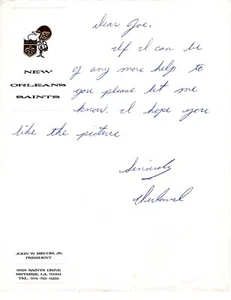 Dear Joe,
If I can be
NEW
ORLEANS
SAINTS
of any more help to
you please let me
know. I hope you
like the picture
Sincerely
JOHN W. MECOM, JR.
PRESIDENT
SAINTS DRIVE
METAIRIE, LA.
TEL.